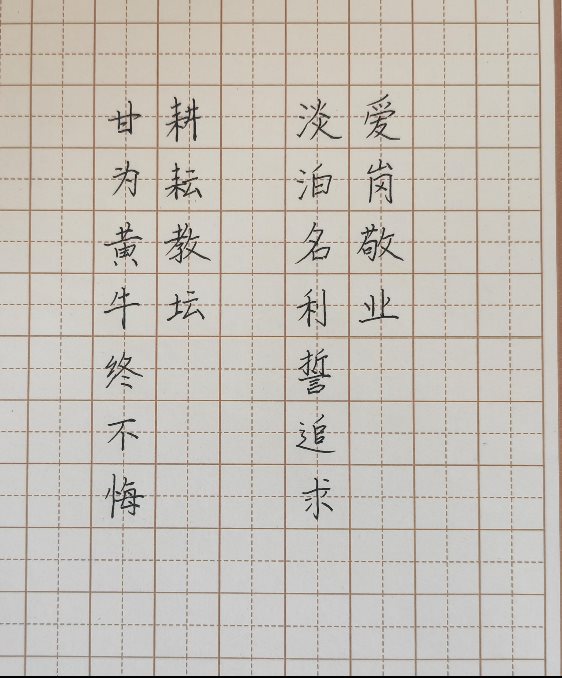 爱岗敬业
淡泊名利誓追求
耕耘教坛
甘为黄牛终不悔